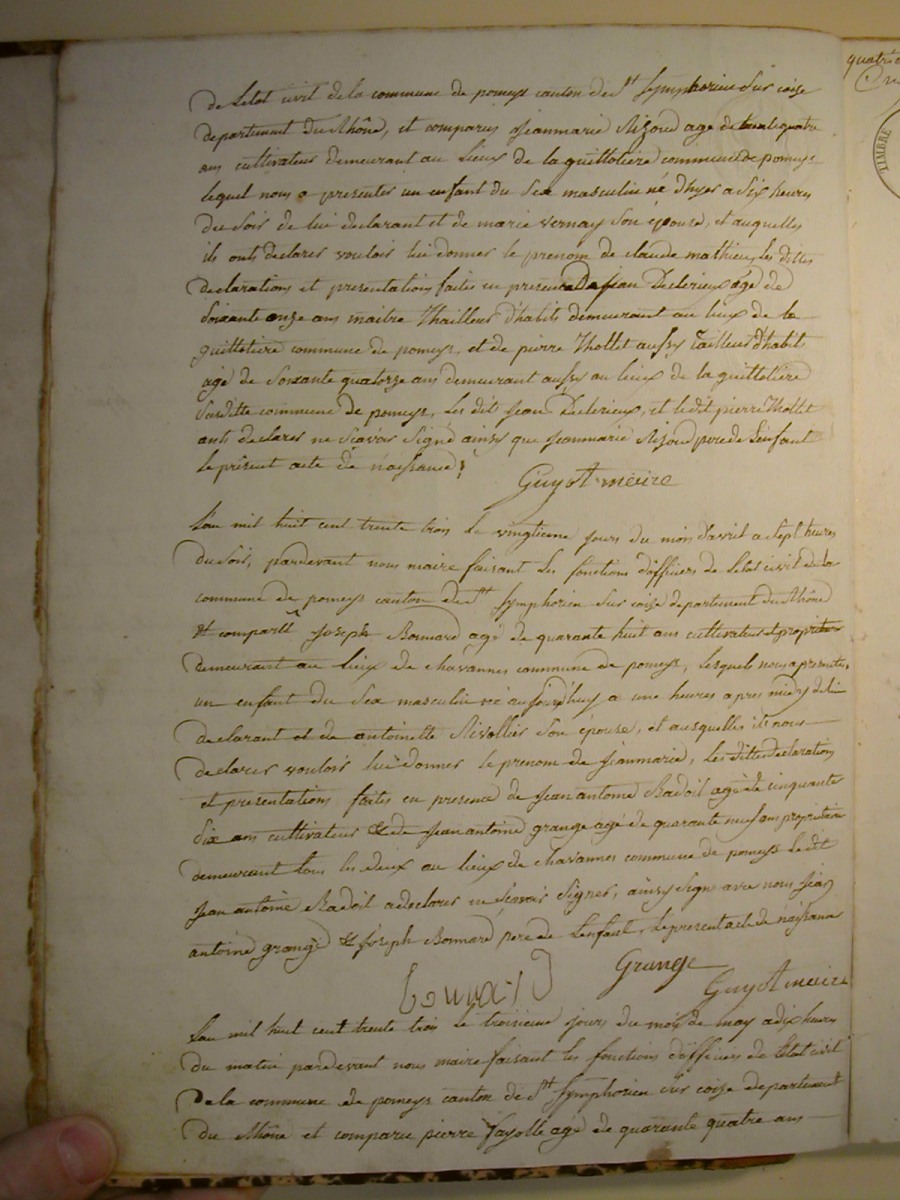 de Letat civil de la commune de pomeys canton de st Symphorien Sur coise
departement du Rhône, et comparus Jeanmarie Rizoud age de trente quatre
ans cultivateur demeurant au Lieux de la guillotiere commune de pomeys
lequel nous a presenter un enfant du Sex masculin né d'hyer a Six heures
du Soir de lui declarant et de marie vernay Son épouse, et auquelles
ils onts declarer vouloir lui donner le prenom de claude mathieu, les dittes
declarations et presentations faites en presence De jean Declerieux âgé de
Soixante onze ans maitre Thailleur d'habits demeurant au lieux de la
guillotiere commune de pomeys, et de pierre Thollet aussy Tailleur d'habit
agé de Soixante quatorze ans demeurant aussy au lieux de la guillotiere
Susditte commune de pomeys, Les dit Jean Declerieux, et ledit pierre Thollet
onts declarer ne Scavoir Signé ainsy que Jeanmarie Rizoud pere de Lenfant
Le présent acte de naissance;
Guyot meire
L'an mil huit cent trente trois Le vingtieme jours du mois d'avril a Sept heures
du Soir, pardevant nous maire faisant les fonctions d'officiers de Letat civil de la
commune de pomeys canton de st Symphorien Sur coise departement du Rhône
et comparu Joseph Bonnard agé de quarante huit ans cultivateur et propriétaire
demeurant au lieux de chavannes commune de pomeys, lesquels nous a presenter,
un enfant du Sex masculin né aujourd'huy a une heures apres midy de lui
declarant et de antoinette Rivollier Son épouse, et ausquelles ils nous
declarer vouloir lui donner le prenom de jeanmarie, les dittes declaration
et presentations faites en presence de Jean antoine Radoil agé de cinquante
dix ans cultivateur et de Jean antoine grange agé de quarante neuf ans propriétaire
demeurant tous les deux au lieux de chavannes commune de pomeys Le dit
Jean antoine Radoil a declarer ne Scavoir Signer, ainsy Signe avec nous Jean
antoine grange et Joseph Bonnard pere de Lenfant, Le present acte de naissance
bonnard Grange
Guyot meire
L'an mil huit cent trente trois Le troisieme jours du mois de may a dix heures
du matin pardevant nous maire faisant les fonctions d'officiers de Letat civil
De la commune de pomeys canton de st Symphorien Sur coise departement
du Rhône et comparu pierre fayolle agé de quarante quatre ans
TIMBRE